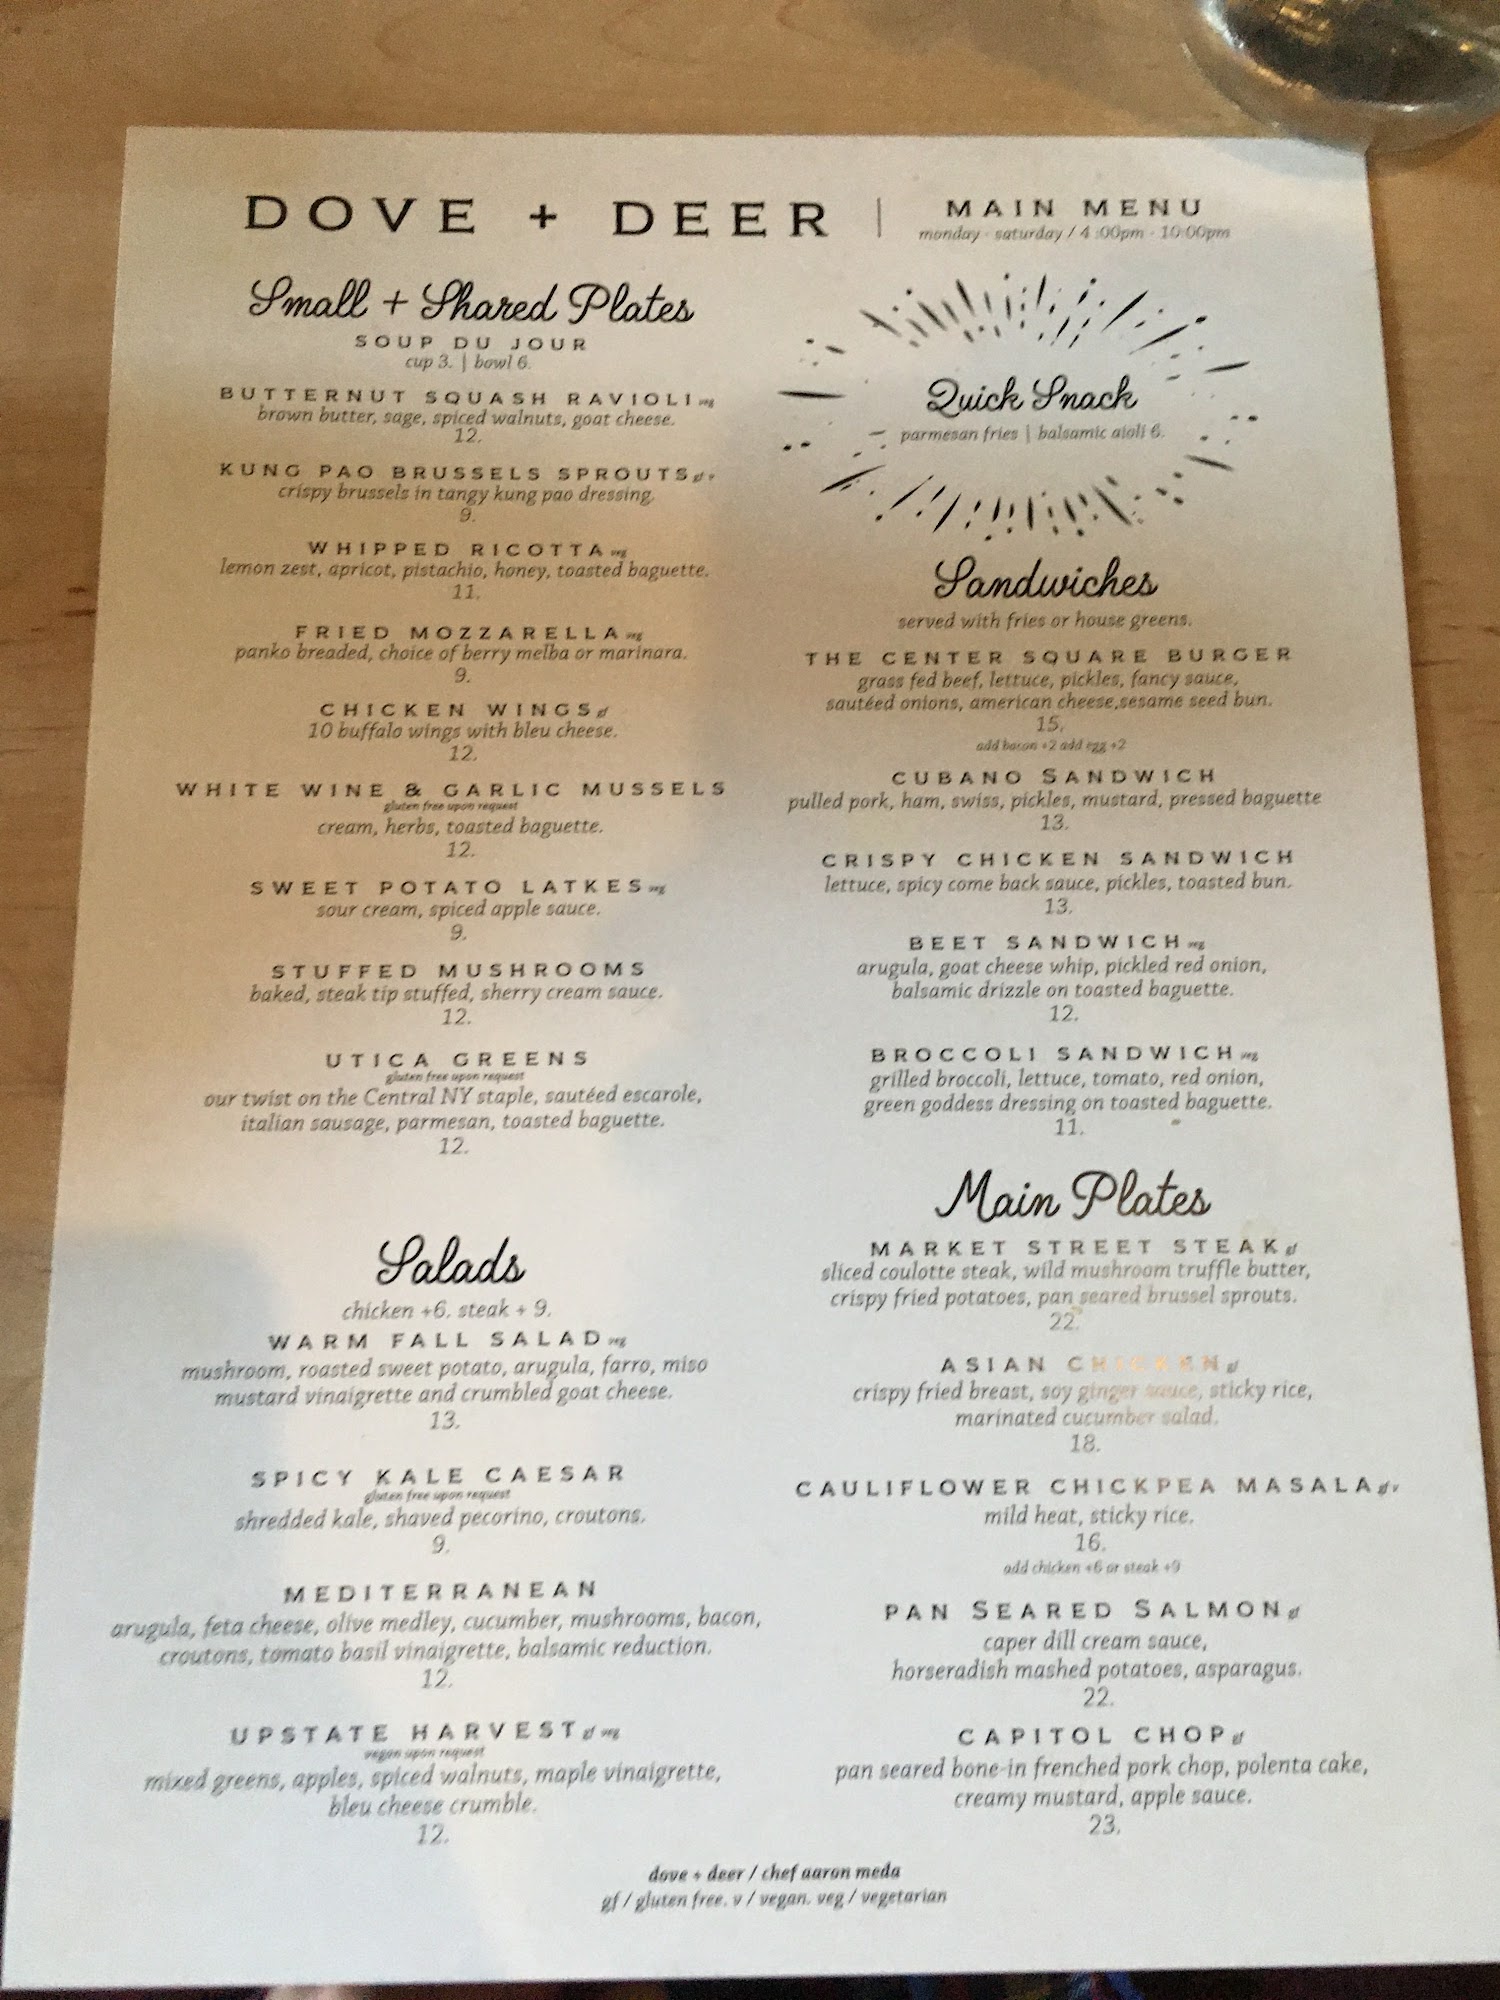 DOVE + DEER | MAIN MENU
monday - saturday / 4:00pm - 10:00pm
Small + Shared Plates
SOUP DU JOUR
cup 3. | bowl 6.
BUTTERNUT SQUASH RAVIOLI veg
brown butter, sage, spiced walnuts, goat cheese.
12.
KUNG PAO BRUSSELS SPROUTS gf v
crispy brussels in tangy kung pao dressing.
9.
WHIPPED RICOTTA veg
lemon zest, apricot, pistachio, honey, toasted baguette.
11.
FRIED MOZZARELLA veg
panko breaded, choice of berry melba or marinara.
9.
CHICKEN WINGS gf
10 buffalo wings with bleu cheese.
12.
WHITE WINE & GARLIC MUSSELS
gluten free upon request
cream, herbs, toasted baguette.
12.
SWEET POTATO LATKES veg
sour cream, spiced apple sauce.
9.
STUFFED MUSHROOMS
baked, steak tip stuffed, sherry cream sauce.
12.
UTICA GREENS
gluten free upon request
our twist on the Central NY staple, sautéed escarole,
italian sausage, parmesan, toasted baguette.
12.
Salads
chicken +6. steak + 9.
WARM FALL SALAD veg
mushroom, roasted sweet potato, arugula, farro, miso
mustard vinaigrette and crumbled goat cheese.
13.
SPICY KALE CAESAR
gluten free upon request
shredded kale, shaved pecorino, croutons.
9.
MEDITERRANEAN
arugula, feta cheese, olive medley, cucumber, mushrooms, bacon,
croutons, tomato basil vinaigrette, balsamic reduction.
12.
UPSTATE HARVEST gf veg
vegan upon request
mixed greens, apples, spiced walnuts, maple vinaigrette,
bleu cheese crumble.
12.
Quick Snack
parmesan fries | balsamic aioli 6.
Sandwiches
served with fries or house greens.
THE CENTER SQUARE BURGER
grass fed beef, lettuce, pickles, fancy sauce,
sautéed onions, american cheese,sesame seed bun.
15.
add bacon +2 add egg +2
CUBANO SANDWICH
pulled pork, ham, swiss, pickles, mustard, pressed baguette
13.
CRISPY CHICKEN SANDWICH
lettuce, spicy come back sauce, pickles, toasted bun.
13.
BEET SANDWICH veg
arugula, goat cheese whip, pickled red onion,
balsamic drizzle on toasted baguette.
12.
BROCCOLI SANDWICH veg
grilled broccoli, lettuce, tomato, red onion,
green goddess dressing on toasted baguette.
11.
Main Plates
MARKET STREET STEAK gf
sliced coulotte steak, wild mushroom truffle butter,
crispy fried potatoes, pan seared brussel sprouts.
22.
ASIAN CHICKEN gf
crispy fried breast, soy ginger sauce, sticky rice,
marinated cucumber salad.
18.
CAULIFLOWER CHICKPEA MASALA gf v
mild heat, sticky rice.
16.
add chicken +6 or steak +9
PAN SEARED SALMON gf
caper dill cream sauce,
horseradish mashed potatoes, asparagus.
22.
CAPITOL CHOP gf
pan seared bone-in frenched pork chop, polenta cake,
creamy mustard, apple sauce.
23.
dove + deer / chef aaron meda
gf / gluten free. v / vegan. veg / vegetarian